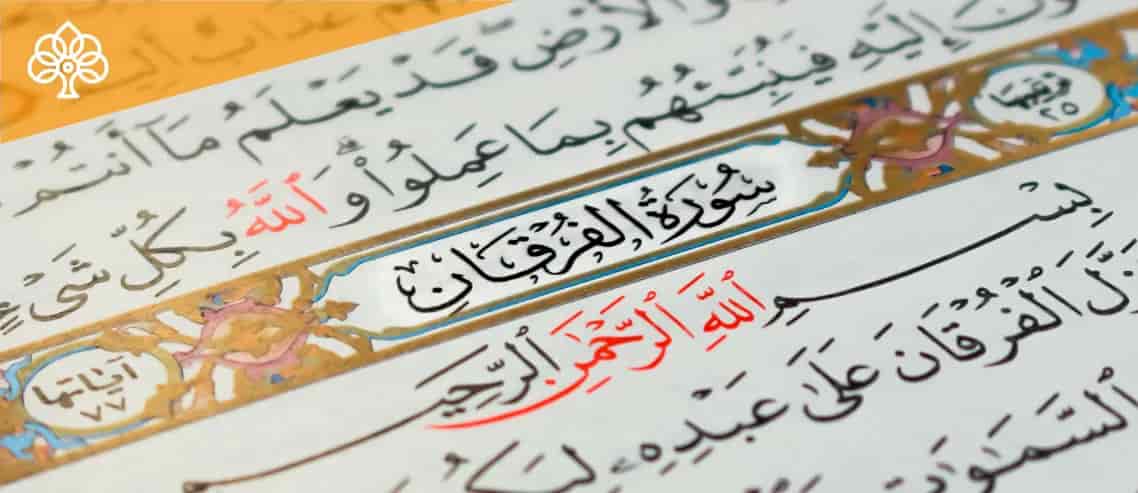 عَذَابٌ أَلِيمٌ
ٱلْأَرْضِ قَدْ يَعْلَمُ مَآ أَنتُمْ
إِلَيْهِ فَيُنَبِّئُهُم بِمَا عَمِلُوا۟ وَٱللَّهُ بِكُلِّ شَىْءٍ
٢٥
سُورَةُ الفُرْقَانِ
آياتها ٧٧
بِسْمِ ٱللَّهِ ٱلرَّحْمَٰنِ ٱلرَّحِيمِ
زَّلَ ٱلْفُرْقَانَ عَلَىٰ عَبْدِهِۦ لِيَكُ
ٱلسَّمَٰوَٰتِ